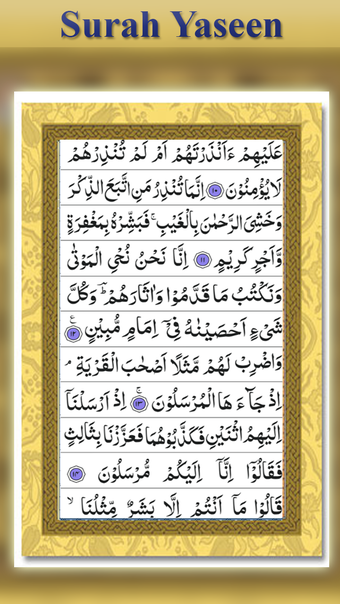 Surah Yaseen
عَلَيْهِمْ ءَاَنْذَرْتَهُمْ اَمْ لَمْ تُنْذِرْهُمْ
لَا يُؤْمِنُوْنَ ۝۱۰ اِنَّمَا تُنْذِرُ مَنِ اتَّبَعَ الذِّكْرَ
وَخَشِيَ الرَّحْمٰنَ بِالْغَيْبِ ۚ فَبَشِّرْهُ بِمَغْفِرَةٍ
وَّاَجْرٍ كَرِيْمٍ ۝۱۱ اِنَّا نَحْنُ نُحْيِ الْمَوْتٰى
وَنَكْتُبُ مَا قَدَّمُوْا وَاٰثَارَهُمْ ؕ وَكُلَّ
شَيْءٍ اَحْصَيْنٰهُ فِيْۤ اِمَامٍ مُّبِيْنٍ ۝۱۲
وَاضْرِبْ لَهُمْ مَّثَلًا اَصْحٰبَ الْقَرْيَةِ ۘ
اِذْ جَآءَهَا الْمُرْسَلُوْنَ ۝۱۳ اِذْ اَرْسَلْنَاۤ
اِلَيْهِمُ اثْنَيْنِ فَكَذَّبُوْهُمَا فَعَزَّزْنَا بِثَالِثٍ
فَقَالُوْۤا اِنَّاۤ اِلَيْكُمْ مُّرْسَلُوْنَ ۝۱۴
قَالُوْا مَاۤ اَنْتُمْ اِلَّا بَشَرٌ مِّثْلُنَا ۙ